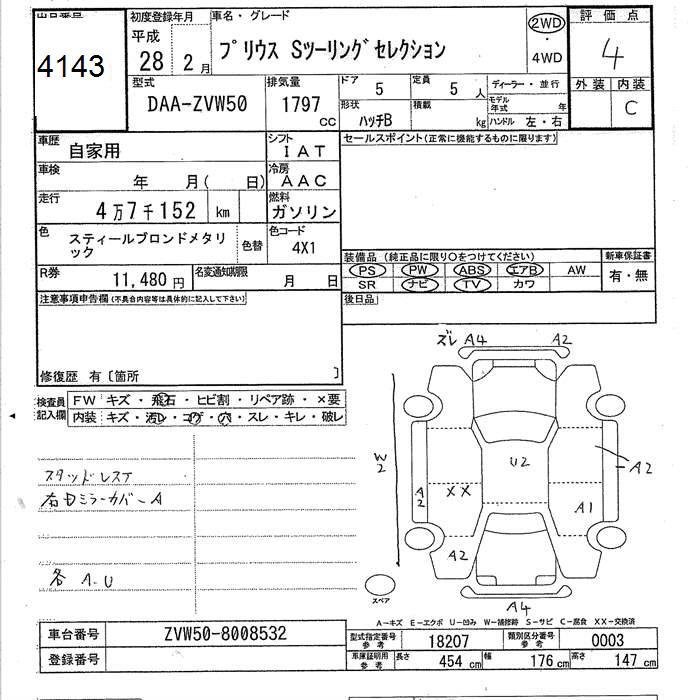 4143
初度登録年月
平成
28 2月
車名・グレード
プリウス Sツーリングセレクション
2WD
・
4WD
評価点
4
外装 内装
C
型式
DAA-ZVW50
排気量
1797
cc
ドア 5
定員 5 人
形状 ハッチB
積載 kg
ディーラー・並行
モデル年式 年
ハンドル 左・右
車歴 自家用
シフト IAT
車検 年 月( 日)
冷房 AAC
走行 4万7千152 km
燃料 ガソリン
色 スティールブロンドメタリック
色替
色コード 4X1
R券 11,480円
名変通知期限 月 日
セールスポイント(正常に機能するものに限ります)
装備品(純正品に限り○をつけてください)
新車保証書
PS PW ABS エアB AW
SR ナビ TV カワ
有・無
後日品
注意事項申告欄(不具合内容等は具体的に記入して下さい)
修復歴 有〔箇所 〕
検査員記入欄
FW キズ・飛石・ヒビ割・リペア跡・×要
内装 キズ・汚レ・コゲ・穴・スレ・キレ・破レ
スタッドレスT
右ドミラーカバーA
各 A.U
ズレ A4 A2
W2
U2
A2
A2
XX
A1
A2
A4
スペア
A-キズ E-エクボ U-凹み W-補修跡 S-サビ C-腐食 XX-交換済
車台番号 ZVW50-8008532
登録番号
型式指定番号 参考 18207
類別区分番号 参考 0003
車庫証明用 参考 長さ 454cm 幅 176cm 高さ 147cm